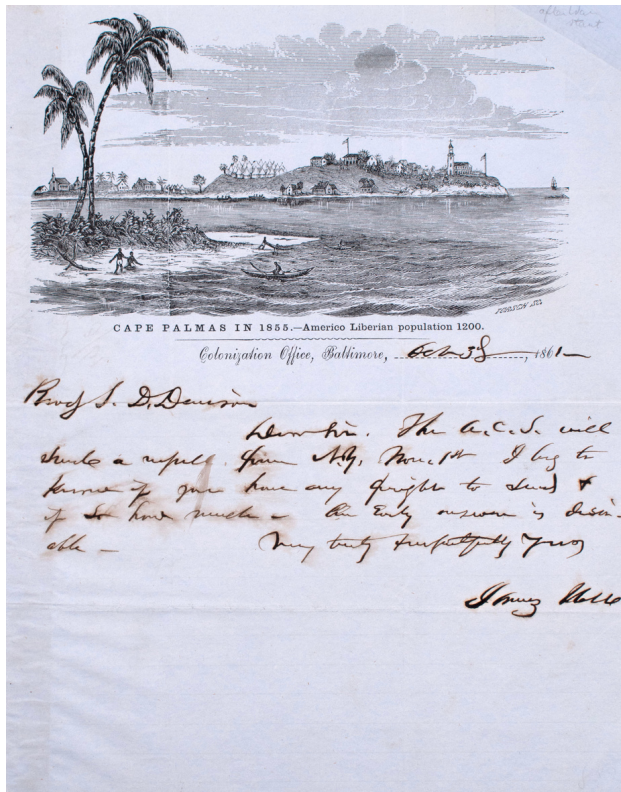 after war
start
JUDSON SC.
CAPE PALMAS IN 1855.—Americo Liberian population 1200.
Colonization Office, Baltimore, Oct 3d, 1861
Revd S. D. Denison
Dear Sir. The A. C. S. will
send a vessel from N.Y. Nov. 1st I beg to
know if you have any freight to send &
if so how much – An Early answer is desir-
able – Very truly & respectfully Yrs
James Hall